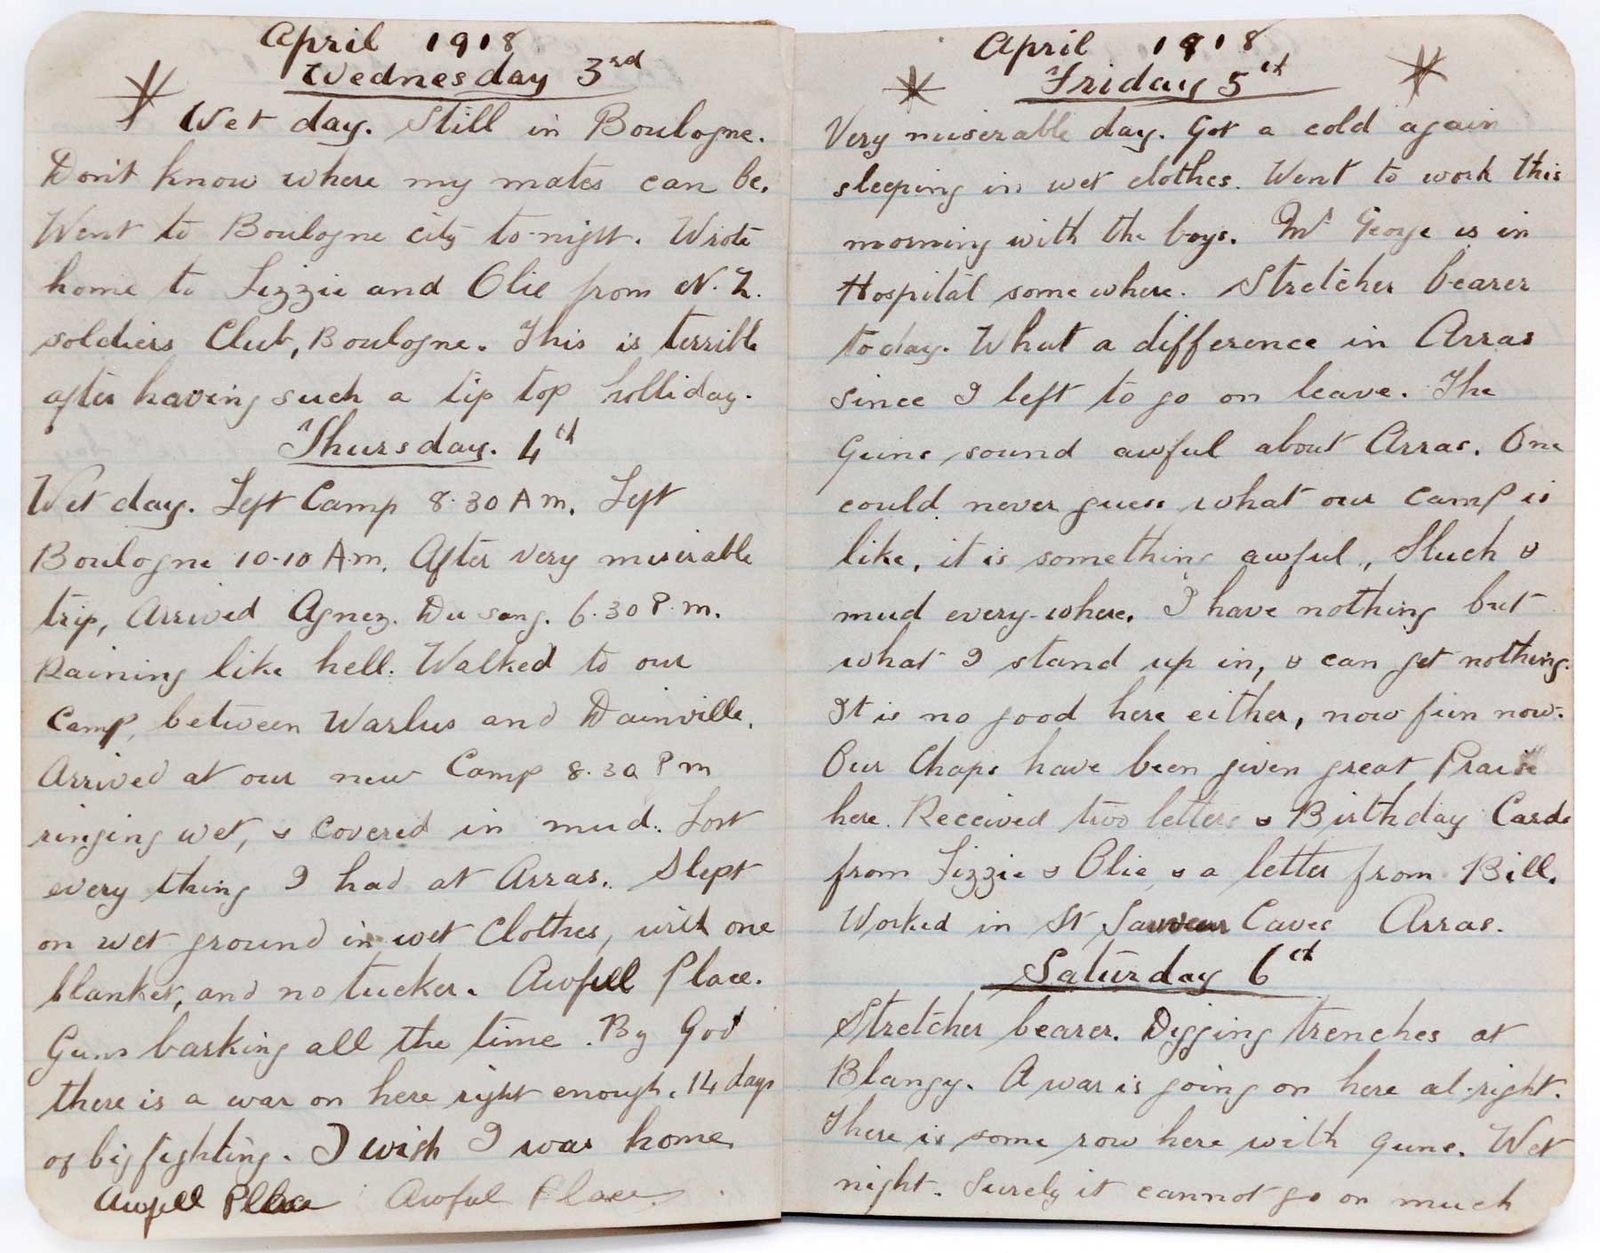 April 1918
Wednesday 3rd
Wet day. Still in Boulogne.
Don't know where my mates can be.
Went to Boulogne city to-night. Wrote
home to Lizzie and Olie from N.Z.
soldiers Club, Boulogne. This is terrible
after having such a tip top holliday.
Thursday. 4th
Wet day. Left Camp 8.30 A m. Left
Boulogne 10.10 A.m. After very miserable
trip, Arrived Agnez. Du sang. 6.30 P.m.
Raining like hell. Walked to our
Camp, between Warlus and Dainville.
Arrived at our new Camp 8.30 P m
ringing wet, & covered in mud. Lost
every thing I had at Arras. Slept
on wet ground in wet Clothes, with one
blanket, and no tucker. Awfull Place.
Guns barking all the time. By God
there is a war on here right enough. 14 days
of big fighting. I wish I was home
Awfull Place Awful Place.
April 1918
Friday 5th
Very miserable day. Got a cold again
sleeping in wet clothes. Went to work this
morning with the boys. Mr George is in
Hospital some where. Stretcher bearer
today. What a difference in Arras
since I left to go on leave. The
Guns sound awful about Arras. One
could never guess what our camp is
like, it is something awful, Sluch &
mud every-where. I have nothing but
what I stand up in, & can get nothing.
It is no good here either, now fun now.
Our Chaps have been given great Praise
here. Received two letters & Birthday Cards
from Lizzie & Olie & a letter from Bill.
Worked in St Sauveur Caves Arras.
Saturday 6th
Stretcher bearer. Digging trenches at
Blangy. A war is going on here al-right.
There is some row here with guns. Wet
night. Surely it cannot go on much